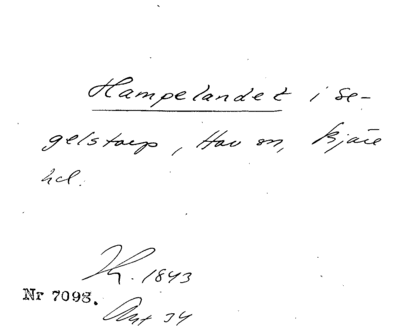 Hampelandet i Se-
gelstorp, Hov sn, Bjäre
hd.
1843
Nr 7098.
Akt 34